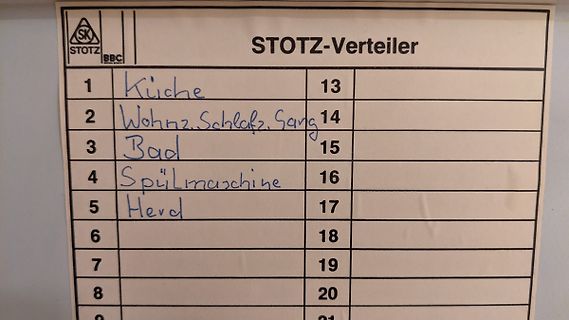 SK
STOTZ
BBC
STOTZ-Verteiler
1 Küche 13
2 Wohnz. Schlafz. Gang 14
3 Bad 15
4 Spülmaschine 16
5 Herd 17
6 18
7 19
8 20
9 21